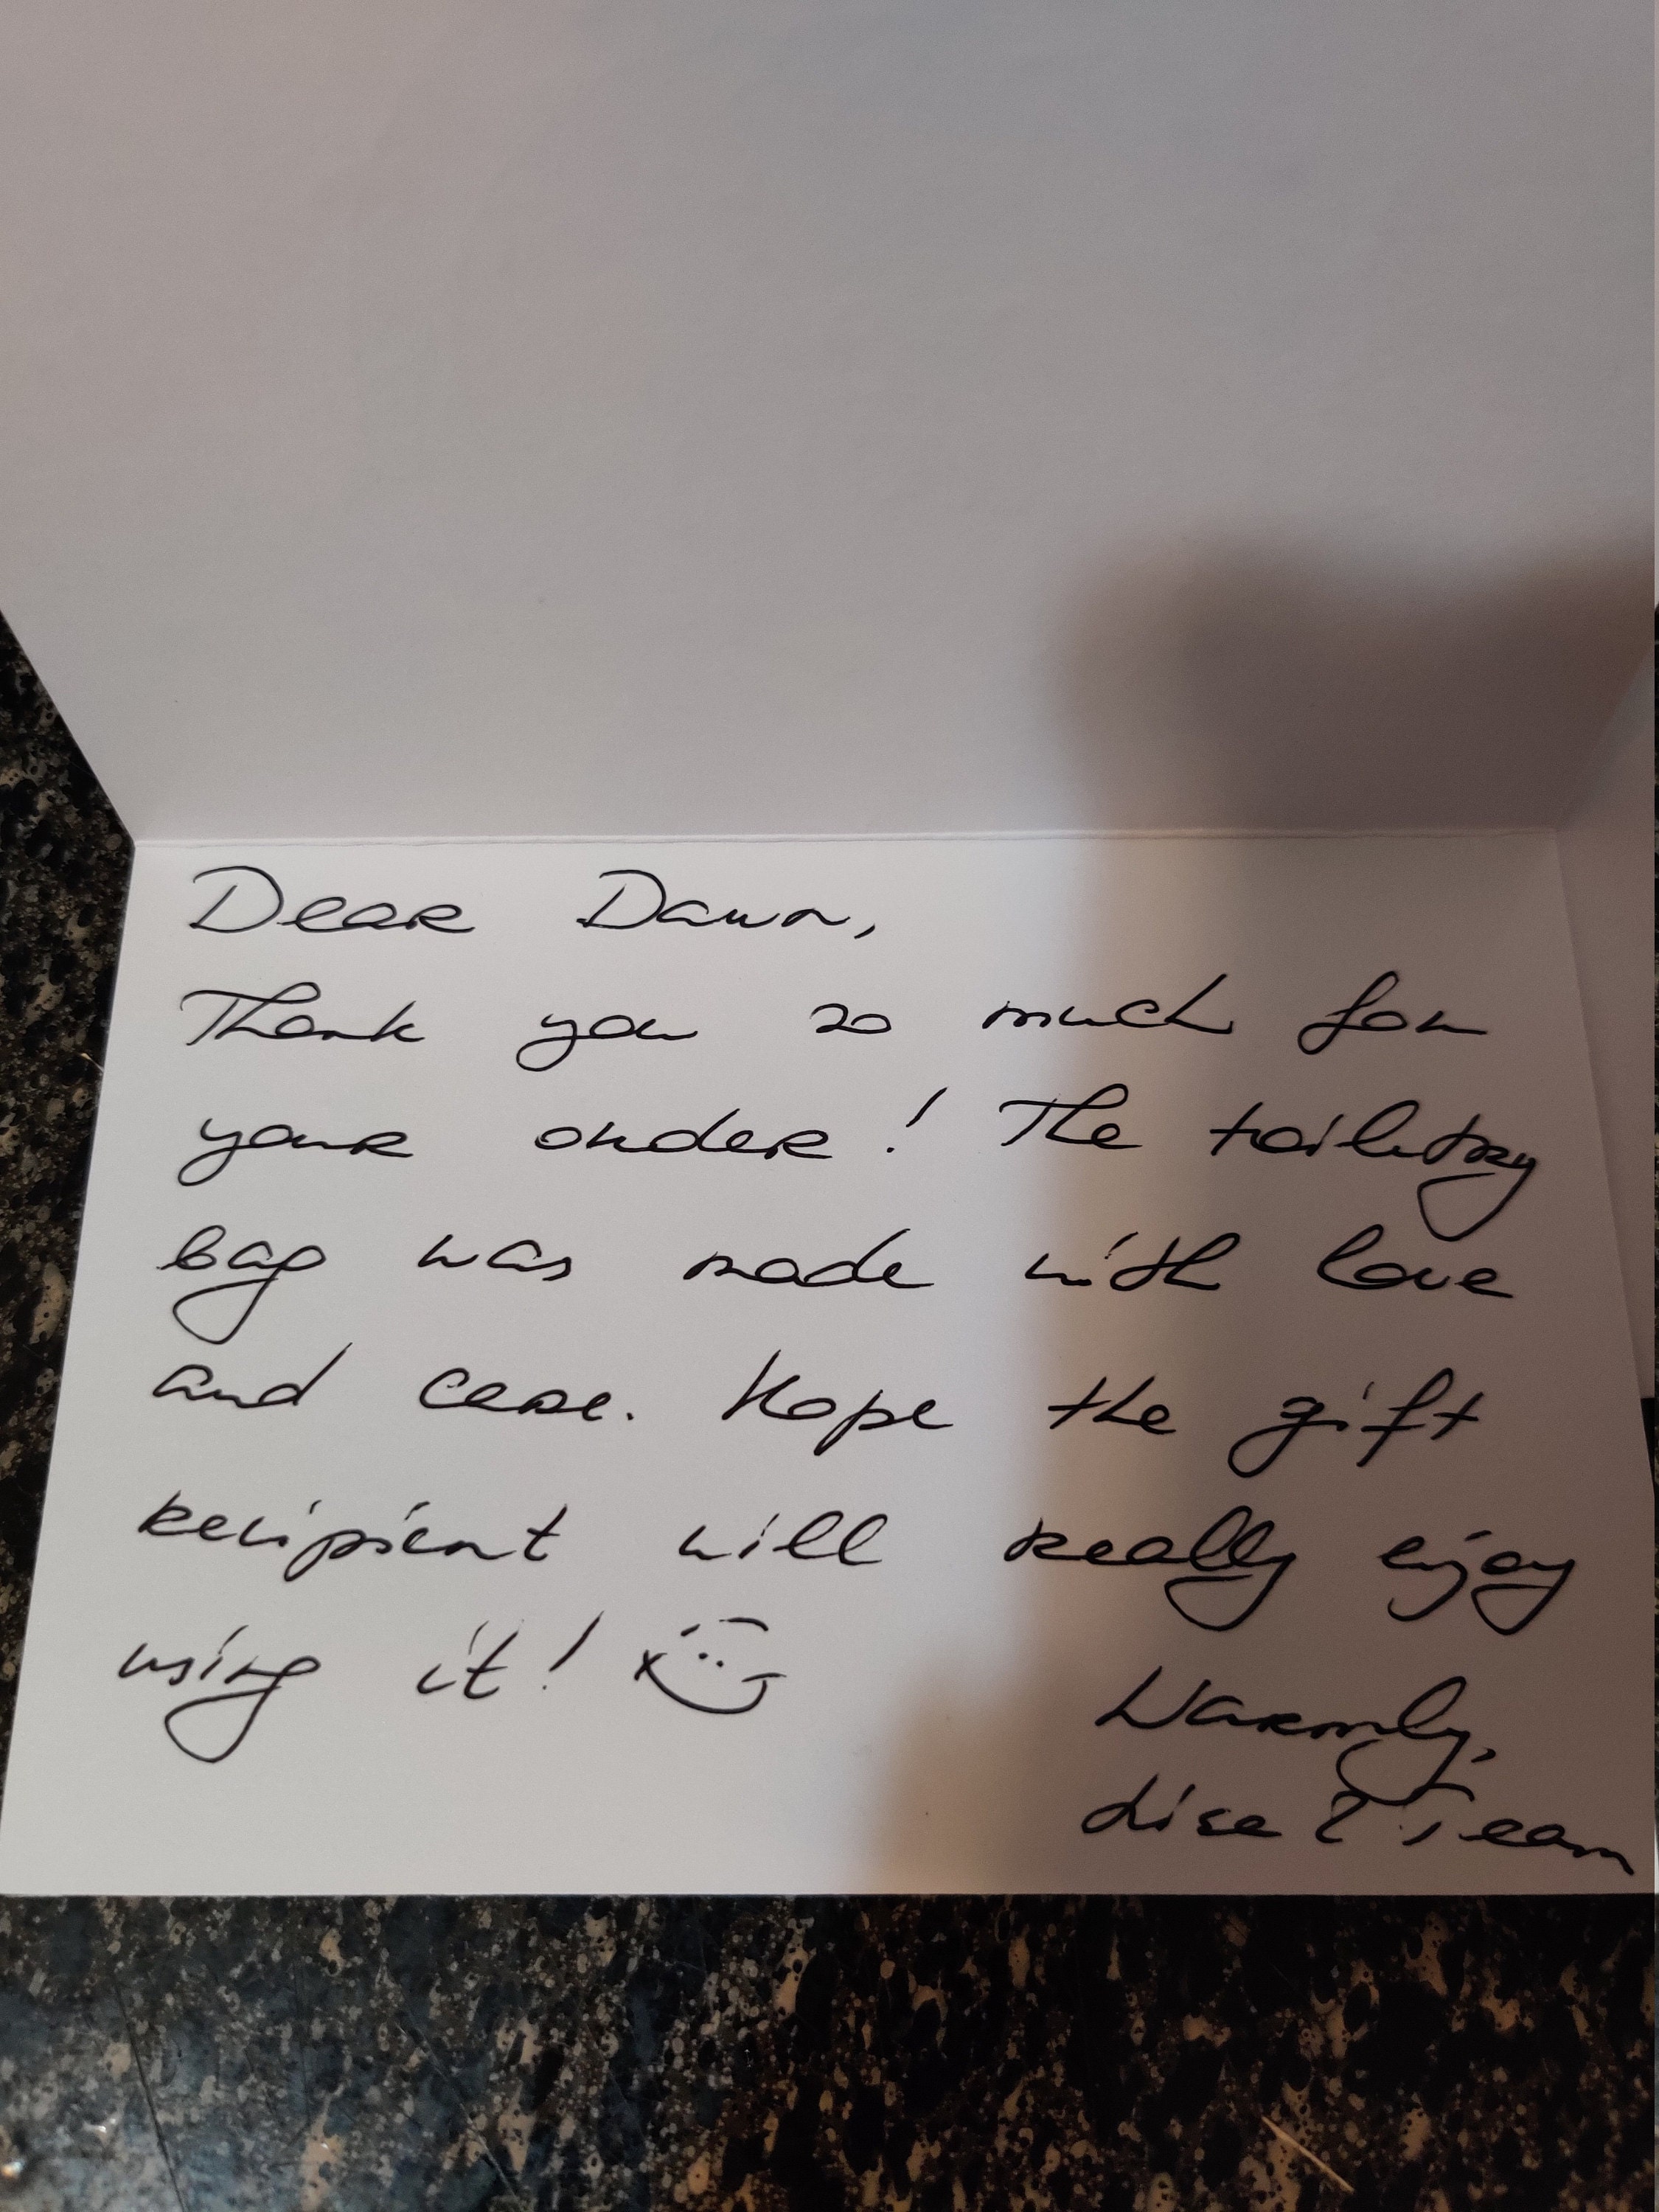 Dear Dawn,
Thank you so much for
your order! The toiletry
bag was made with love
and care. Hope the gift
recipient will really enjoy
using it!
Warmly,
Lisa & Team